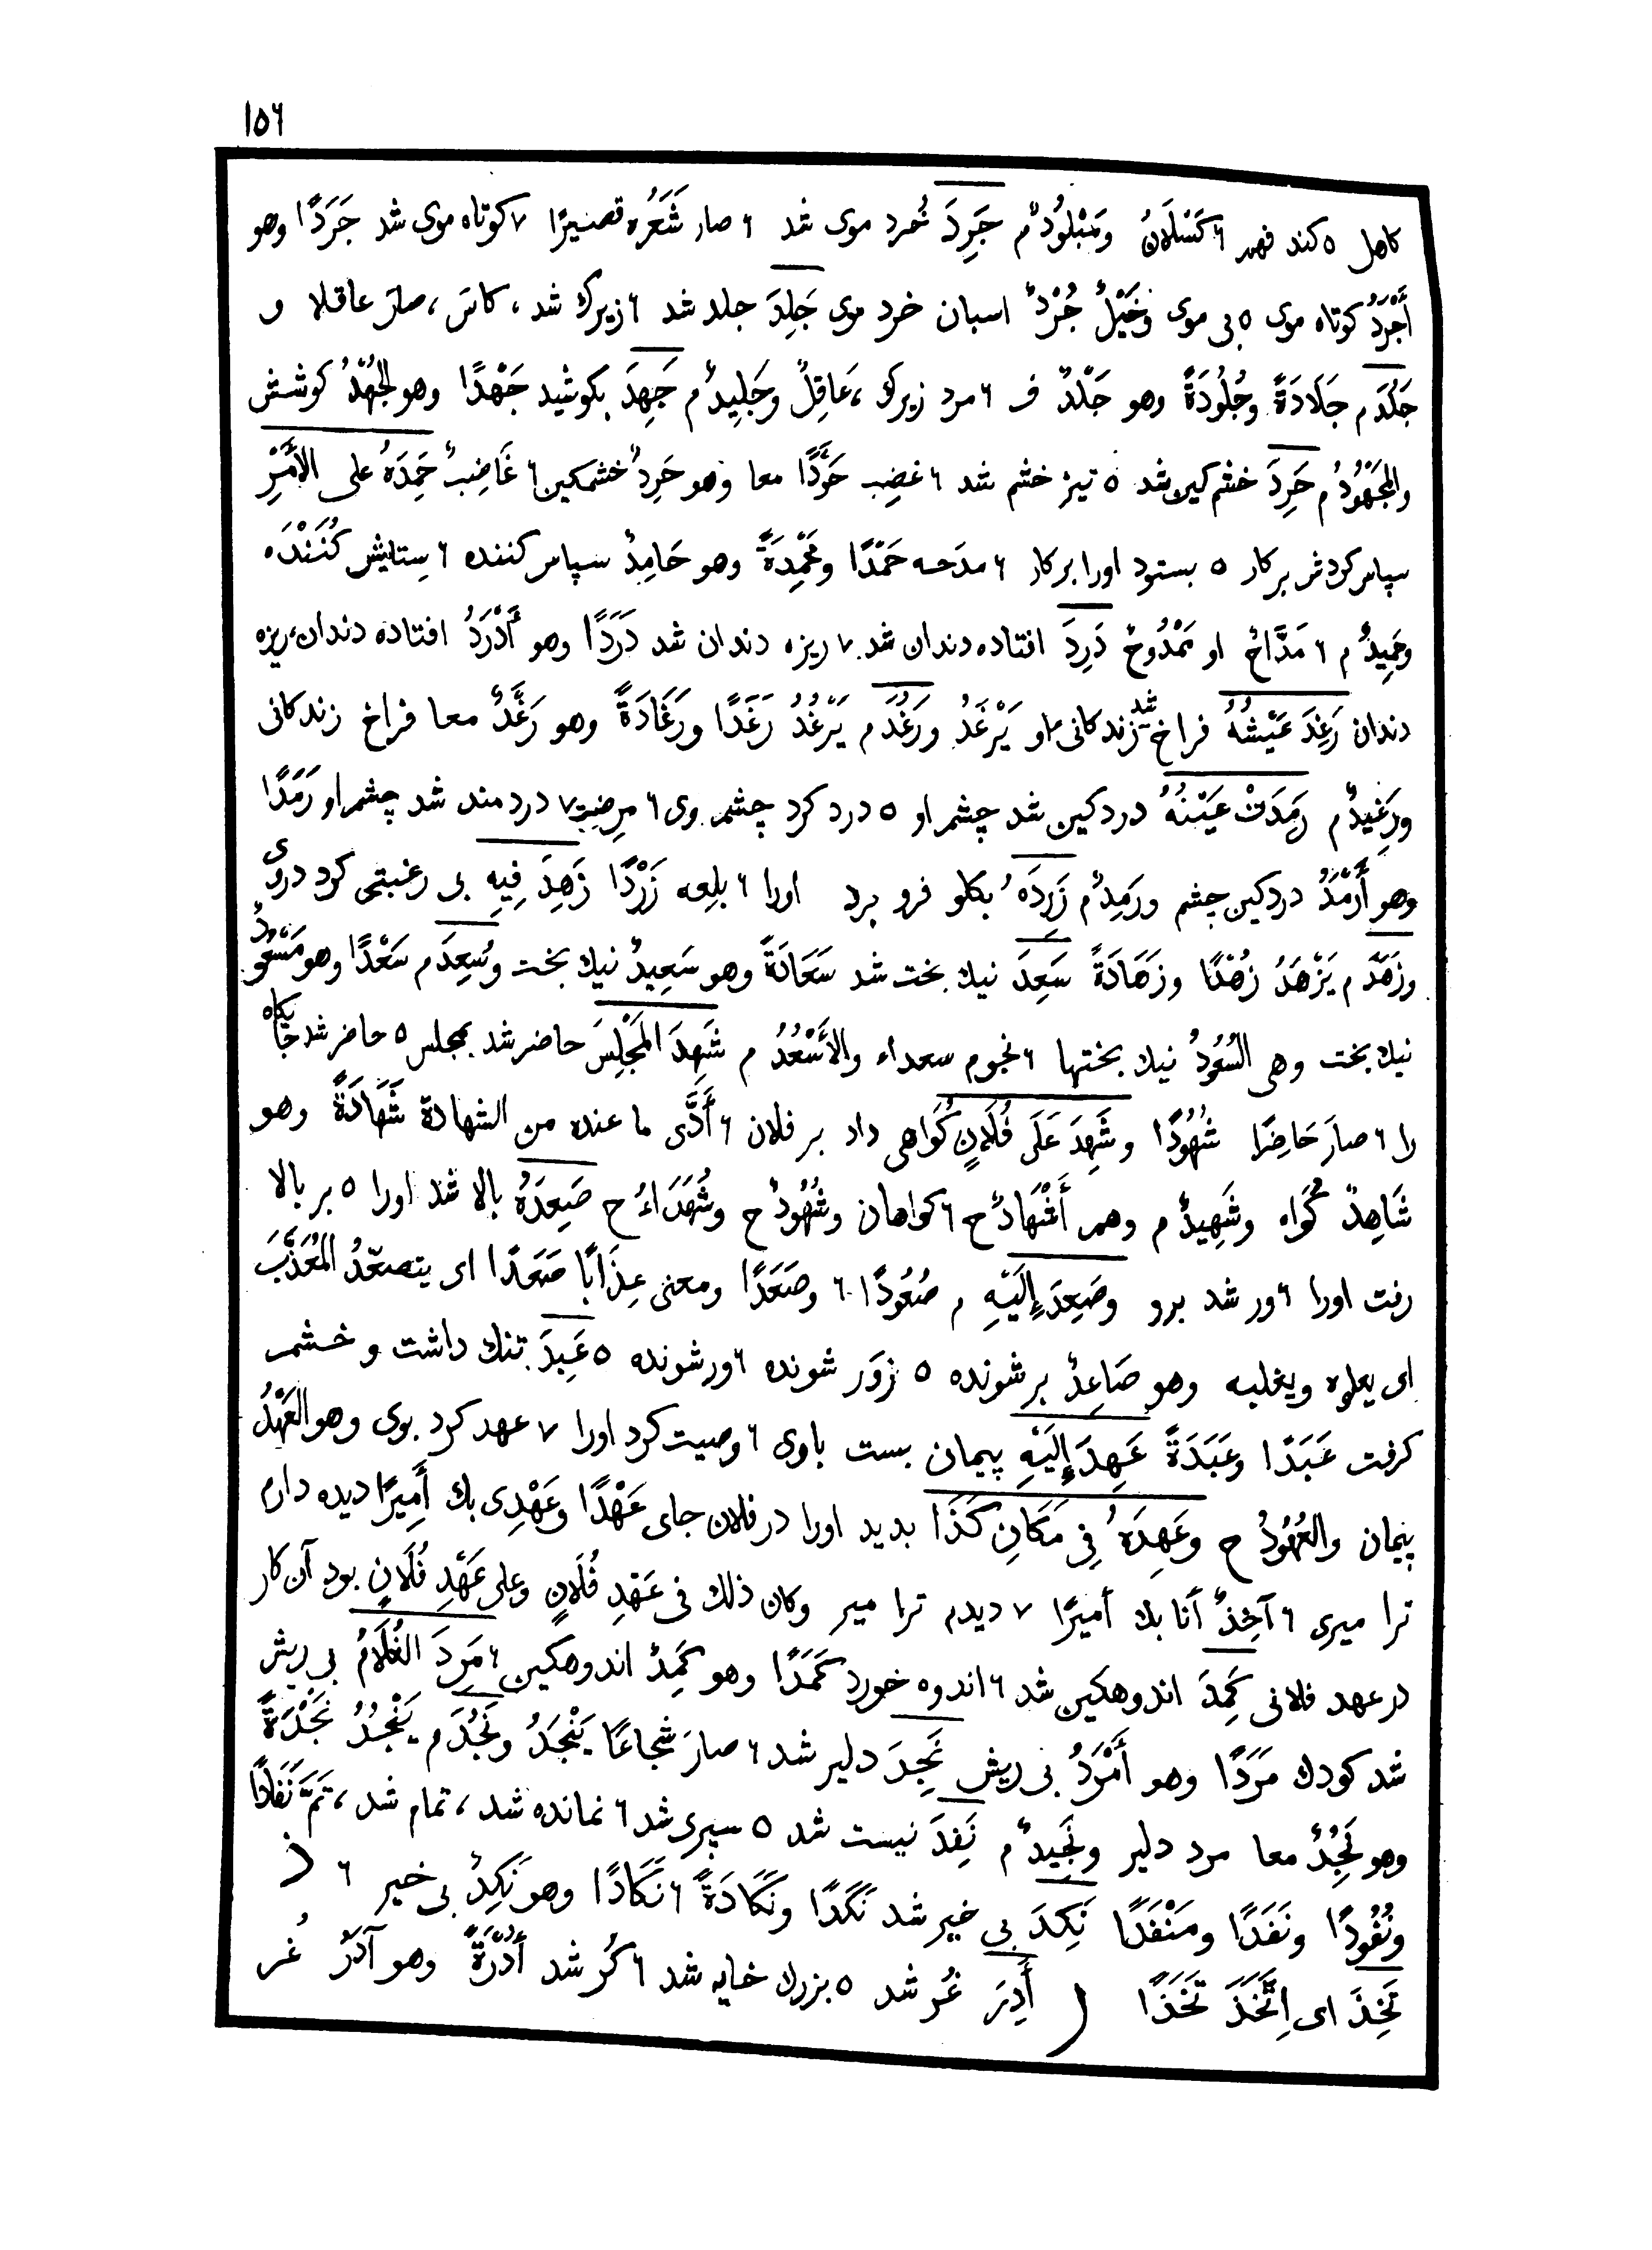 ١٥٦
كاهل ٥ كند فهم ٦ كَسْلَانُ ومَبْلُودٌ م جَرِدَ خُرد موى شد ٦ صار شَعَرُه قصيرًا ٧ كوتاه موى شد جَرَدًا وهو
أَجْرَدُ كوتاه موى ٥ بى موى وخَيْلٌ جُرْدٌ اسبان خرد موى جَلِدَ جلد شد ٦ زيرك شد ، كاسَ ، صارَ عاقلا و
جَلُدَ م جَلَادَةً وجُلُودَةً وهو جَلْدٌ ف ٦ مرد زيرك ، عَاقِلٌ وجَلِيدٌ م جَهِدَ بكوشيد جَهْدًا وهو الجُهْدُ كوشش
والمَجْهُودُ م حَرِدَ خشم كين شد ٥ تيز خشم شد ٦ غضِب حَرَدًا معا وهو حَرِدٌ خشمكين ٦ غَاضِبٌ حَمِدَهُ على الأَمْرِ
سپاس كردش بر كار ٥ بستود اورا بر كار ٦ مدَحه حَمْدًا ومَحْمِدَةً وهو حَامِدٌ سپاس كننده ٦ ستايش كُنَنْدَه
وحَمِيدٌ م ٦ مَدَّاحٌ او مَمْدُوحٌ دَرِدَ افتاده دندان شد ٧ ريزه دندان شد دَرَدًا وهو أَدْرَدُ افتاده دندان ، ريزه
دندان رَغِدَ عَيْشُهُ فراخ شد زندكانى او يَرْغَدُ ورَغُدَ م يَرْغُدُ رَغَدًا ورَغَادَةً وهو رَغَدٌ معا فراخ زندكانى
ورَغِيدٌ م رَمِدَتْ عَيْنُهُ دردكين شد چشم او ٥ درد كرد چشم وى ٦ مرِضت ٧ دردمند شد چشم او رَمَدًا
وهو أَرْمَدُ دردكين چشم ورَمِدٌ م زَرِدَهُ بكلو فرو برد اورا ٦ بلِعه زَرْدًا زَهِدَ فِيهِ بى رغبتى كرد دروى
وزَهَدَ م يَزْهَدُ زُهْدًا وزَهَادَةً سَعِدَ نيك بخت شد سَعَادَةً وهو سَعِيدٌ نيك بخت وسُعِدَ م سَعْدًا وهو مَسْعُودٌ
نيك بخت وهى السُعُودُ نيك بختها ٦ نجوم سعداء والأَسْعُدُ م شَهِدَ المَجْلِسَ حاضر شد بمجلس ٥ حاضر شد جايكاه
را ٦ صارَ حَاضِرًا شُهُودًا وشَهِدَ عَلَى فُلَانٍ كُواهى داد بر فلان ٦ أَدَّى ما عنده من الشهادة شَهَادَةً وهو
شَاهِدٌ كُواه وشَهِيدٌ م وهم أَشْهَادٌ ح ٦ كواهان وشُهُودٌ ح وشُهَدَاءُ ح صَعِدَهُ بالا شد اورا ٥ بر بالا
رفت اورا ٦ ور شد برو وصَعِدَ إِلَيْهِ م صُعُودًا ٦ وصَعَدًا ومعنى عِذَابًا صَعَدًا اى يتصعّدُ المُعَذَّبَ
اى يعلوه ويغلبه وهو صَاعِدٌ بر شونده ٥ زوَر شونده ٦ ور شونده ٥ عَبِدَ تنك داشت و خشم
كرفت عَبَدًا وعَبَدَةً عَهِدَ إِلَيْهِ پيمان بست باوى ٦ وصيت كرد اورا ٧ عهد كرد بوى وهو العَهْدُ
پيمان والعُهُودُ ح وعَهِدَهُ فِى مَكَانِ كَذَا بديد اورا در فلان جاى عَهْدًا وعَهْدِى بك أَمِيرًا ديده دارم
ترا ميرى ٦ آخِذٌ أنا بك أميرًا ٧ ديدم ترا مير وكان ذلك فى عَهْدِ فُلَانٍ وعلى عَهْدِ فُلَانٍ بود آن كار
در عهد فلانى كَمِدَ اندوهكين شد ٦ اندوه خورد كَمَدًا وهو كَمِدٌ اندوهكين ٦ مَرِدَ الغُلَامُ بى ريش
شد كودك مَرَدًا وهو أَمْرَدُ بى ريش نَجِدَ دلير شد ٦ صارَ شجاعًا يَنْجَدُ ونَجُدَ م يَنْجُدُ نَجْدَةً
وهو نَجُدٌ معا مرد دلير ونَجِيدٌ م نَفِدَ نيست شد ٥ سپرى شد ٦ نمانده شد ، تمام شد ، تَمَّ نَفَادًا
ونُفُودًا ونَفَدًا ومَنْفَدًا نَكِدَ بى خير شد نَكَدًا ونَكَادَةً ٦ نَكَادًا وهو نَكِدٌ بى خير ٦ ذ
تَخِذَ اى اِتَّخَذَ تَخَذًا ر أَدِرَ غُر شد ٥ بزرك خايه شد ٦ كُر شد أُدْرَةً وهو آدَرُ غُر